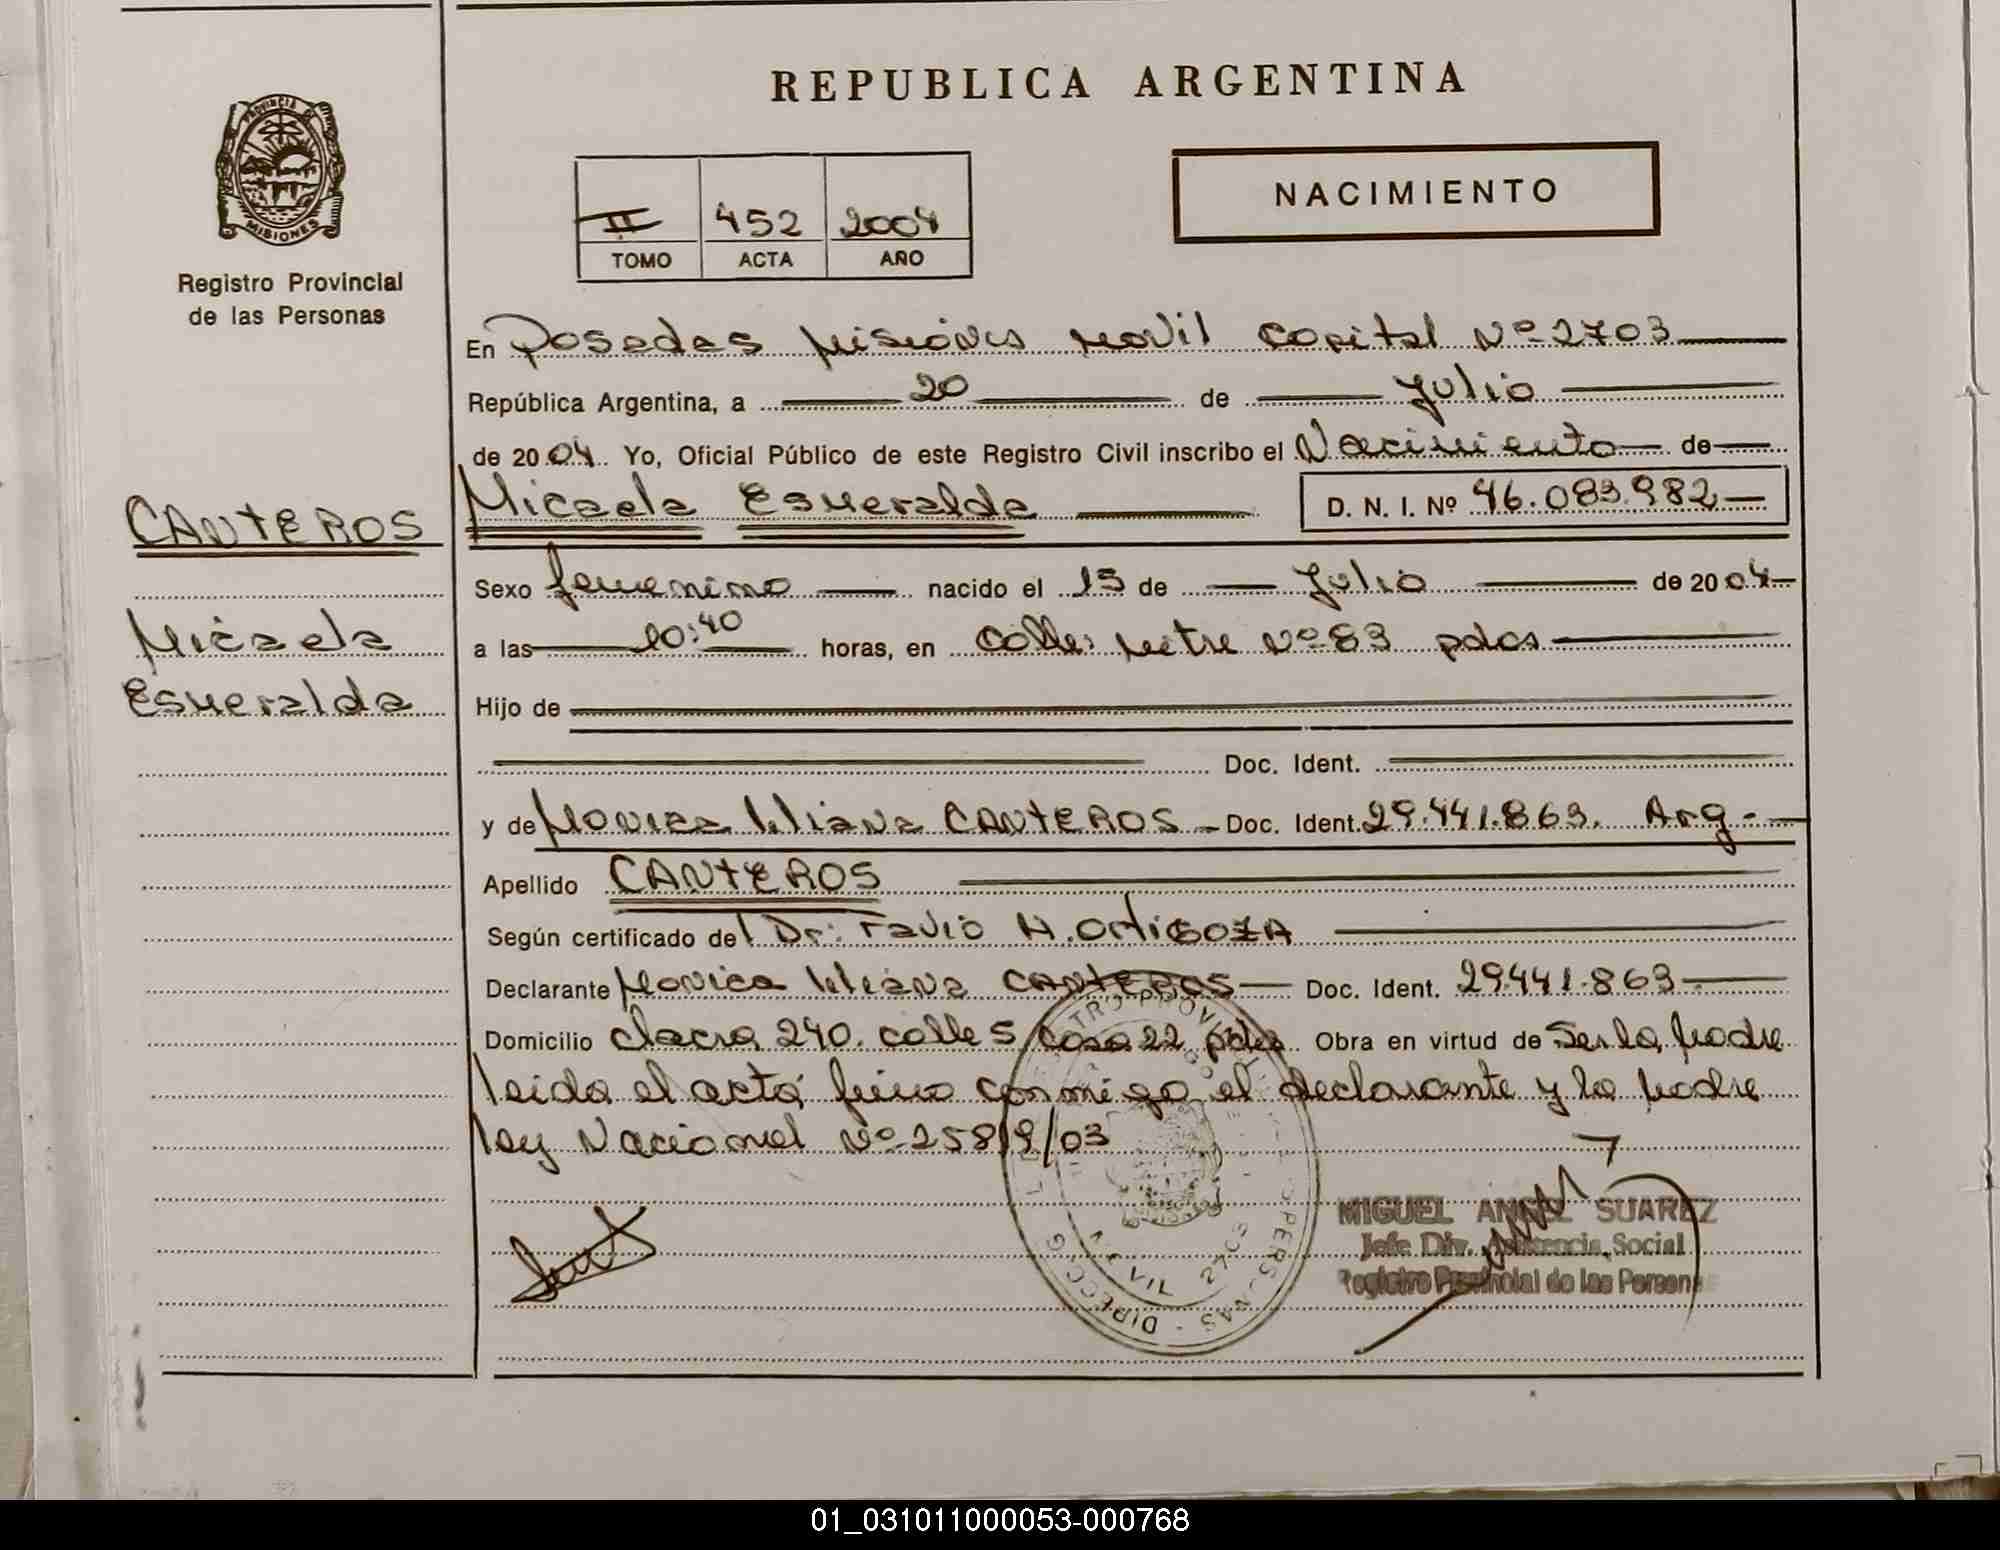 REPUBLICA ARGENTINA
PROVINCIA DE
MISIONES
Registro Provincial
de las Personas
II 452 2004
TOMO ACTA AÑO
NACIMIENTO
En Posadas Misiones Movil Capital Nº 2703
República Argentina, a 20 de Julio
de 2004 Yo, Oficial Público de este Registro Civil inscribo el Nacimiento de
CANTEROS
Micaela
Esmeralda
Micaela Esmeralda D. N. I. Nº 46.083.982
Sexo femenino nacido el 15 de Julio de 2004
a las 10:40 horas, en Calle: Mitre Nº 83 pdas
Hijo de
Doc. Ident.
y de Monica Liliana CANTEROS Doc. Ident. 29.441.863. Arg.
Apellido CANTEROS
Según certificado del Dr: Favio H. Ortigoza
Declarante Monica Liliana CANTEROS Doc. Ident. 29.441.863
Domicilio chacra 240. calle 5 casa 22 pdas Obra en virtud de Ser la Madre
leida el acta firma conmigo el declarante y la Madre
ley Nacional Nº 25819/03
CIVIL 2703
PERSONAS - DIRECC. G
MIGUEL ANGEL SUAREZ
Jefe Div. Asistencia Social
Registro Provincial de las Persona
01_031011000053-000768